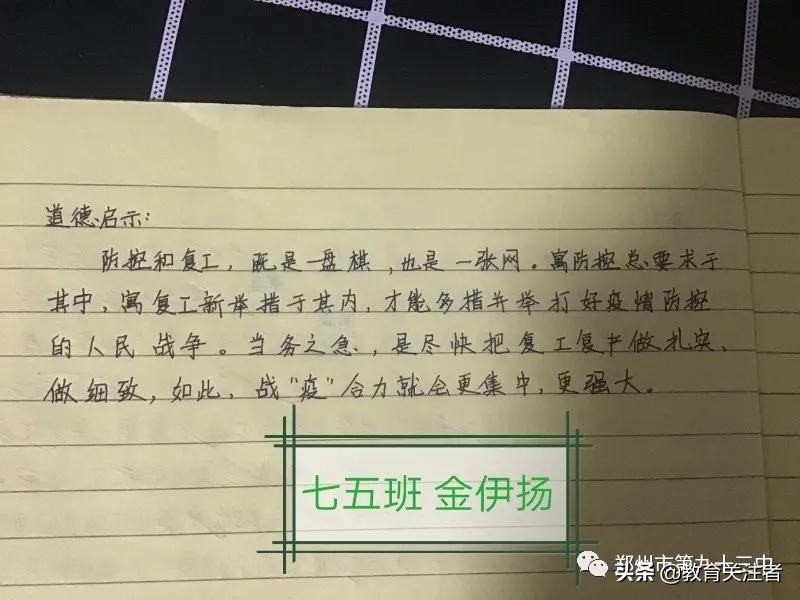 道德启示:
防控和复工，既是一盘棋，也是一张网。寓防控总要求于
其中，寓复工新举措于其内，才能多措并举打好疫情防控
的人民战争。当务之急，是尽快把复工复产做扎实、
做细致，如此，战“疫”合力就会更集中，更强大。
七五班 金伊扬
郑州市第九十三中
头条 @教育关注者